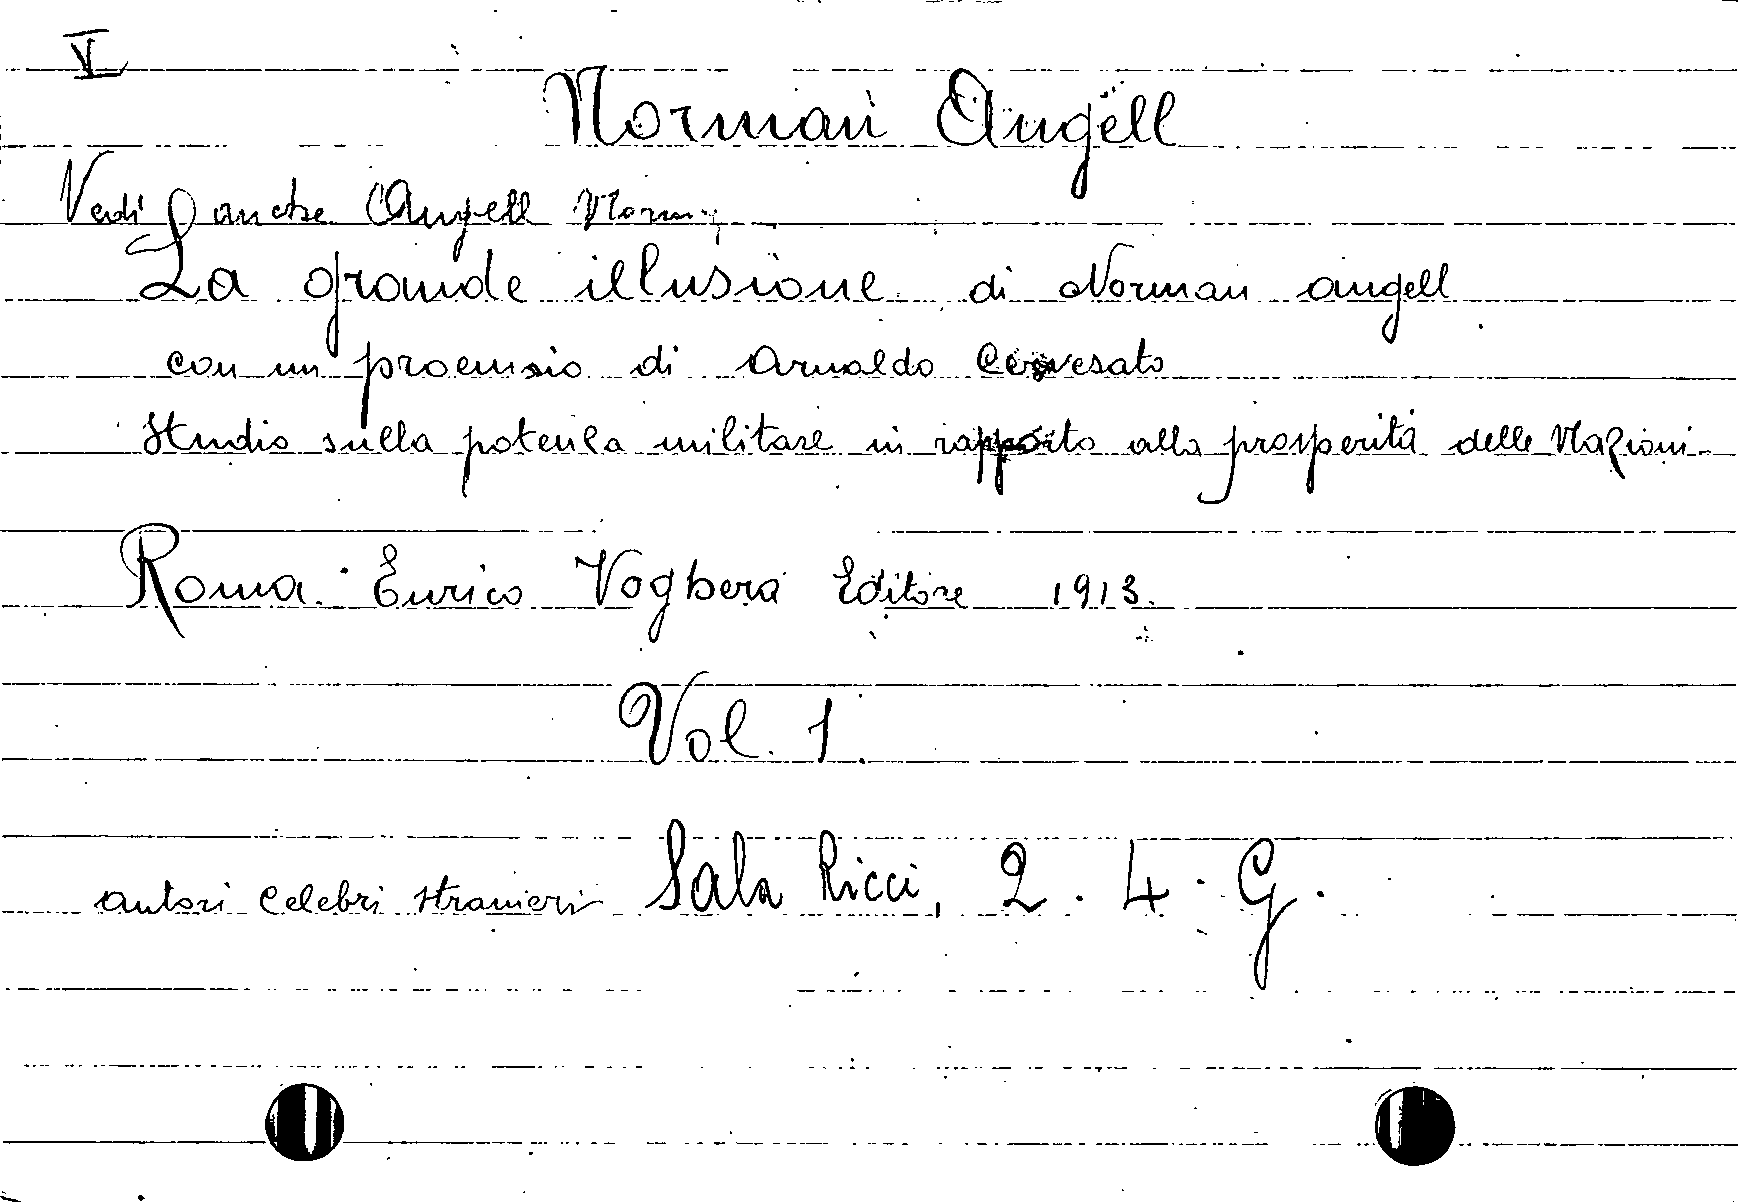 V
Norman Angell
Vedi anche Angell Norm.
La grande illusione di Norman Angell
con un proemio di Arnaldo Cervesato
Studio sulla potenza militare in rapporto alla prosperità delle Nazioni
Roma Enrico Voghera Editore 1913.
Vol. 1.
autori celebri stranieri Sala Ricci, 2. 4. G.